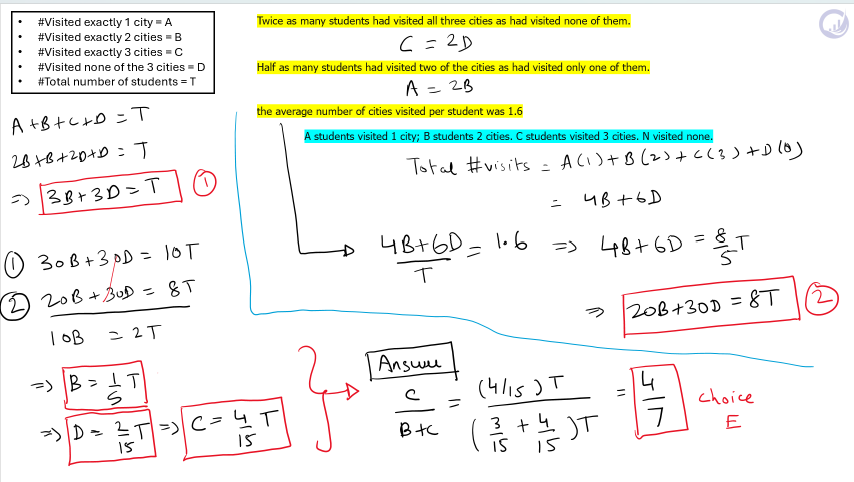 • #Visited exactly 1 city = A
• #Visited exactly 2 cities = B
• #Visited exactly 3 cities = C
• #Visited none of the 3 cities = D
• #Total number of students = T
Twice as many students had visited all three cities as had visited none of them.
C = 2D
Half as many students had visited two of the cities as had visited only one of them.
A = 2B
the average number of cities visited per student was 1.6
A students visited 1 city; B students 2 cities. C students visited 3 cities. N visited none.
Total #visits = A(1) + B(2) + C(3) + D(0)
= 4B + 6D
(4B+6D)/T = 1.6 => 4B + 6D = 8/5 T
=> 20B + 30D = 8T ②
A + B + C + D = T
2B + B + 2D + D = T
=> 3B + 3D = T ①
① 30B + 30D = 10T
② 20B + 30D = 8T
10B = 2T
=> B = 1/5 T
=> D = 2/15 T => C = 4/15 T
Answer
C/(B+C) = (4/15)T / (3/15 + 4/15)T = 4/7
choice
E